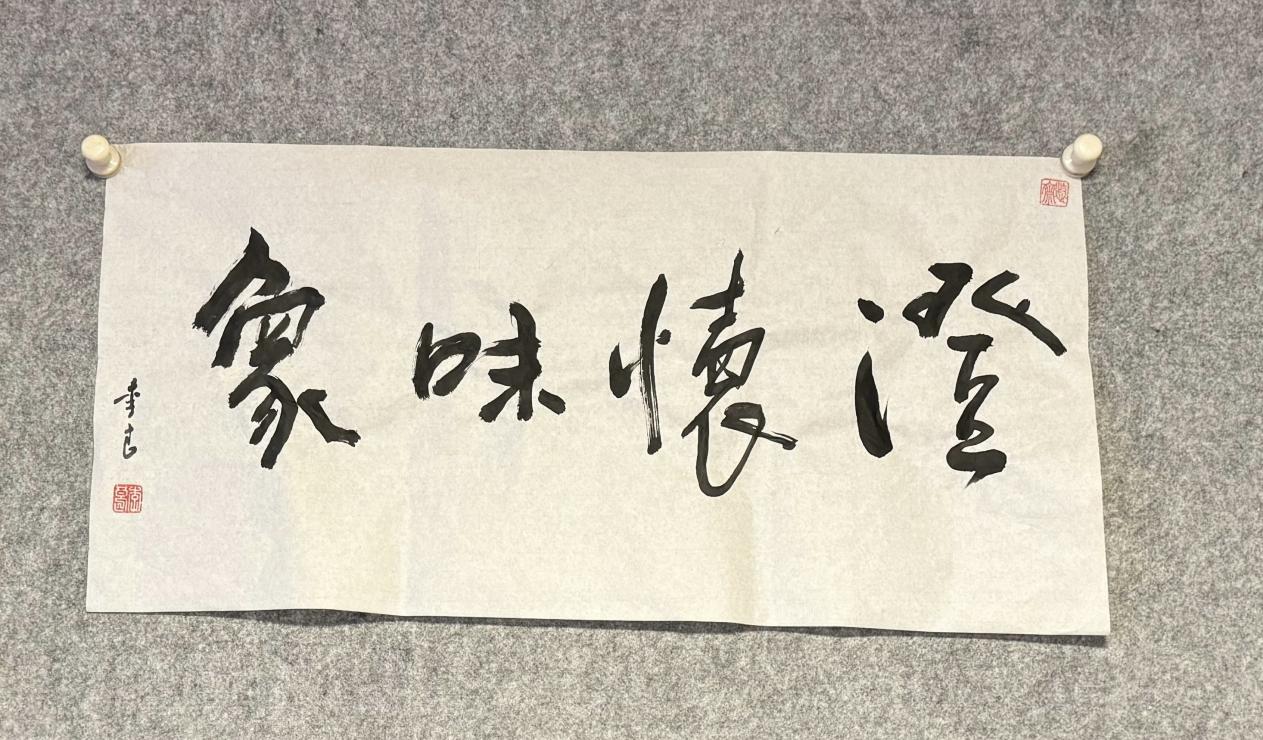 澄懷味象